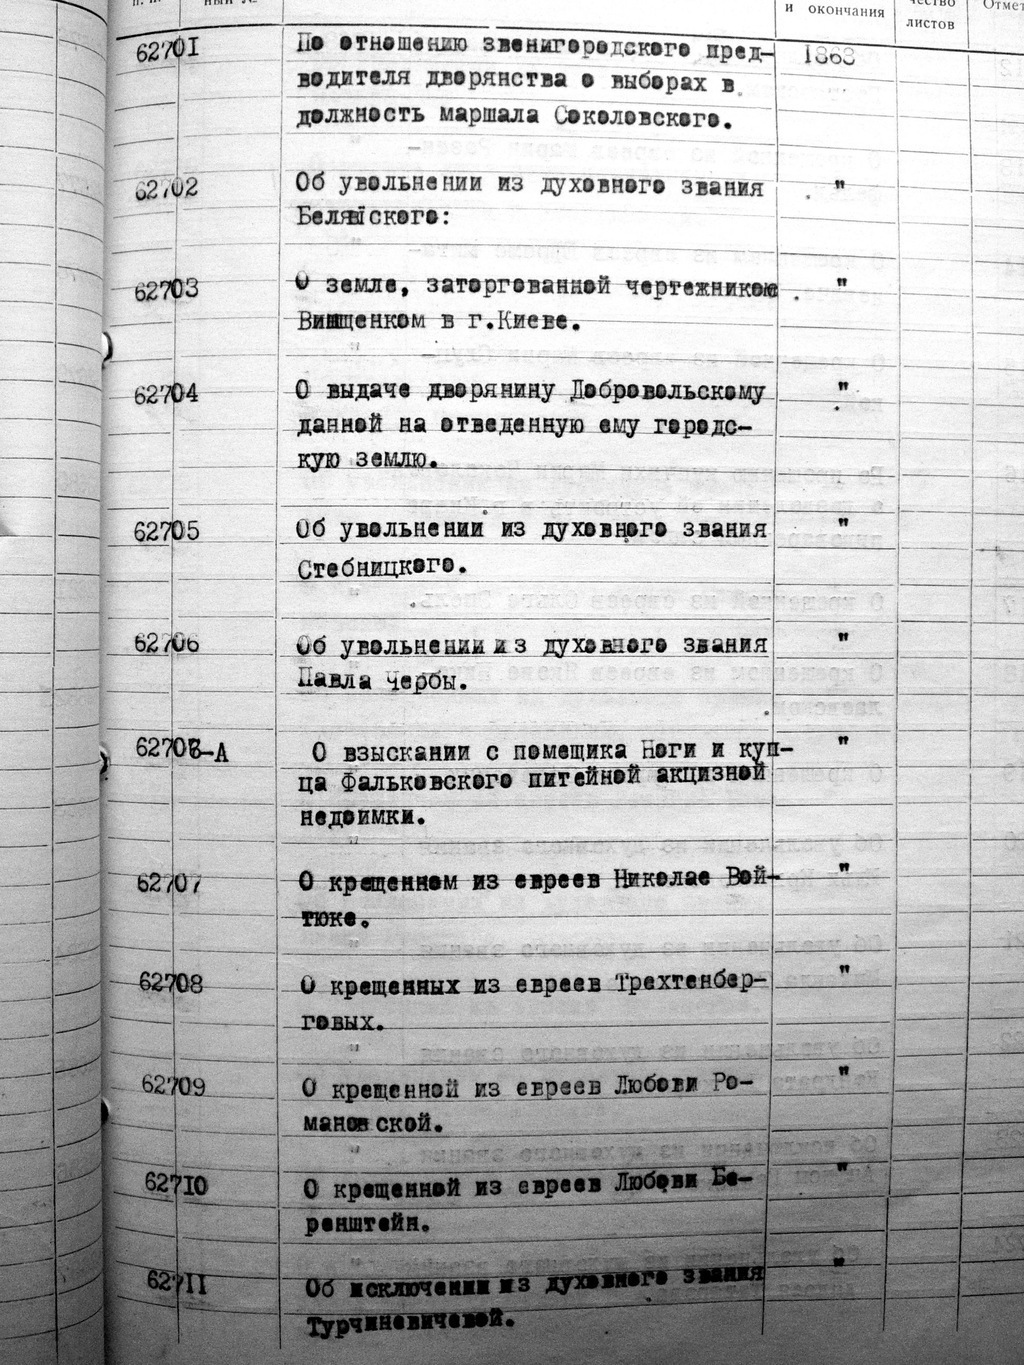 п. п.
ный №
и окончания
чество
листов
Отмет
62701 По отношению звенигородского пред- 1863
водителя дворянства о выборах в
должность маршала Соколовского.
62702 Об увольнении из духовного звания "
Белянского:
62703 О земле, заторгованной чертежником "
Винщенком в г.Киеве.
62704 О выдаче дворянину Добровольскому "
данной на отведенную ему городс-
кую землю.
62705 Об увольнении из духовного звания "
Стебницкого.
62706 Об увольнении из духовного звания "
Павла Чербы.
62706-А О взыскании с помещика Ноги и куп- "
ца Фальковского питейной акцизной
недоимки.
62707 О крещенном из евреев Николае Вой- "
тюке.
62708 О крещенных из евреев Трехтенбер- "
говых.
62709 О крещенной из евреев Любови Ро- "
мановской.
62710 О крещенной из евреев Любови Бе- "
ренштейн.
62711 Об исключении из духовного звания "
Турчиневичевой.